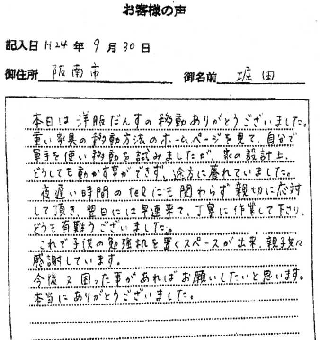 お客様の声
記入日 H24年 9月 30日
御住所 阪南市 御名前 堀田
本日は洋服だんすの移動ありがとうございました。
重い家具の移動方法のホームページを見て、自分で
軍手を使い移動を試みましたが、家の設計上、
どうしても動かす事ができず、途方に暮れていました。
夜遅い時間のtelにも関わらず親切に応対
して頂き、翌日には早速来て、丁寧に作業して下さり、
どうも有難うございました。
これで子供の勉強机を置くスペースが出来、親子共々
感謝しています。
今後又困った事があればお願いしたいと思います。
本当にありがとうございました。